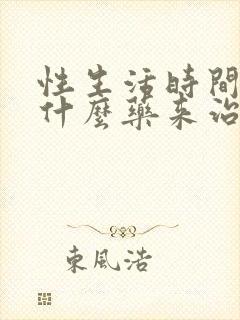 性生活時間
什麼藥來治
東風浩